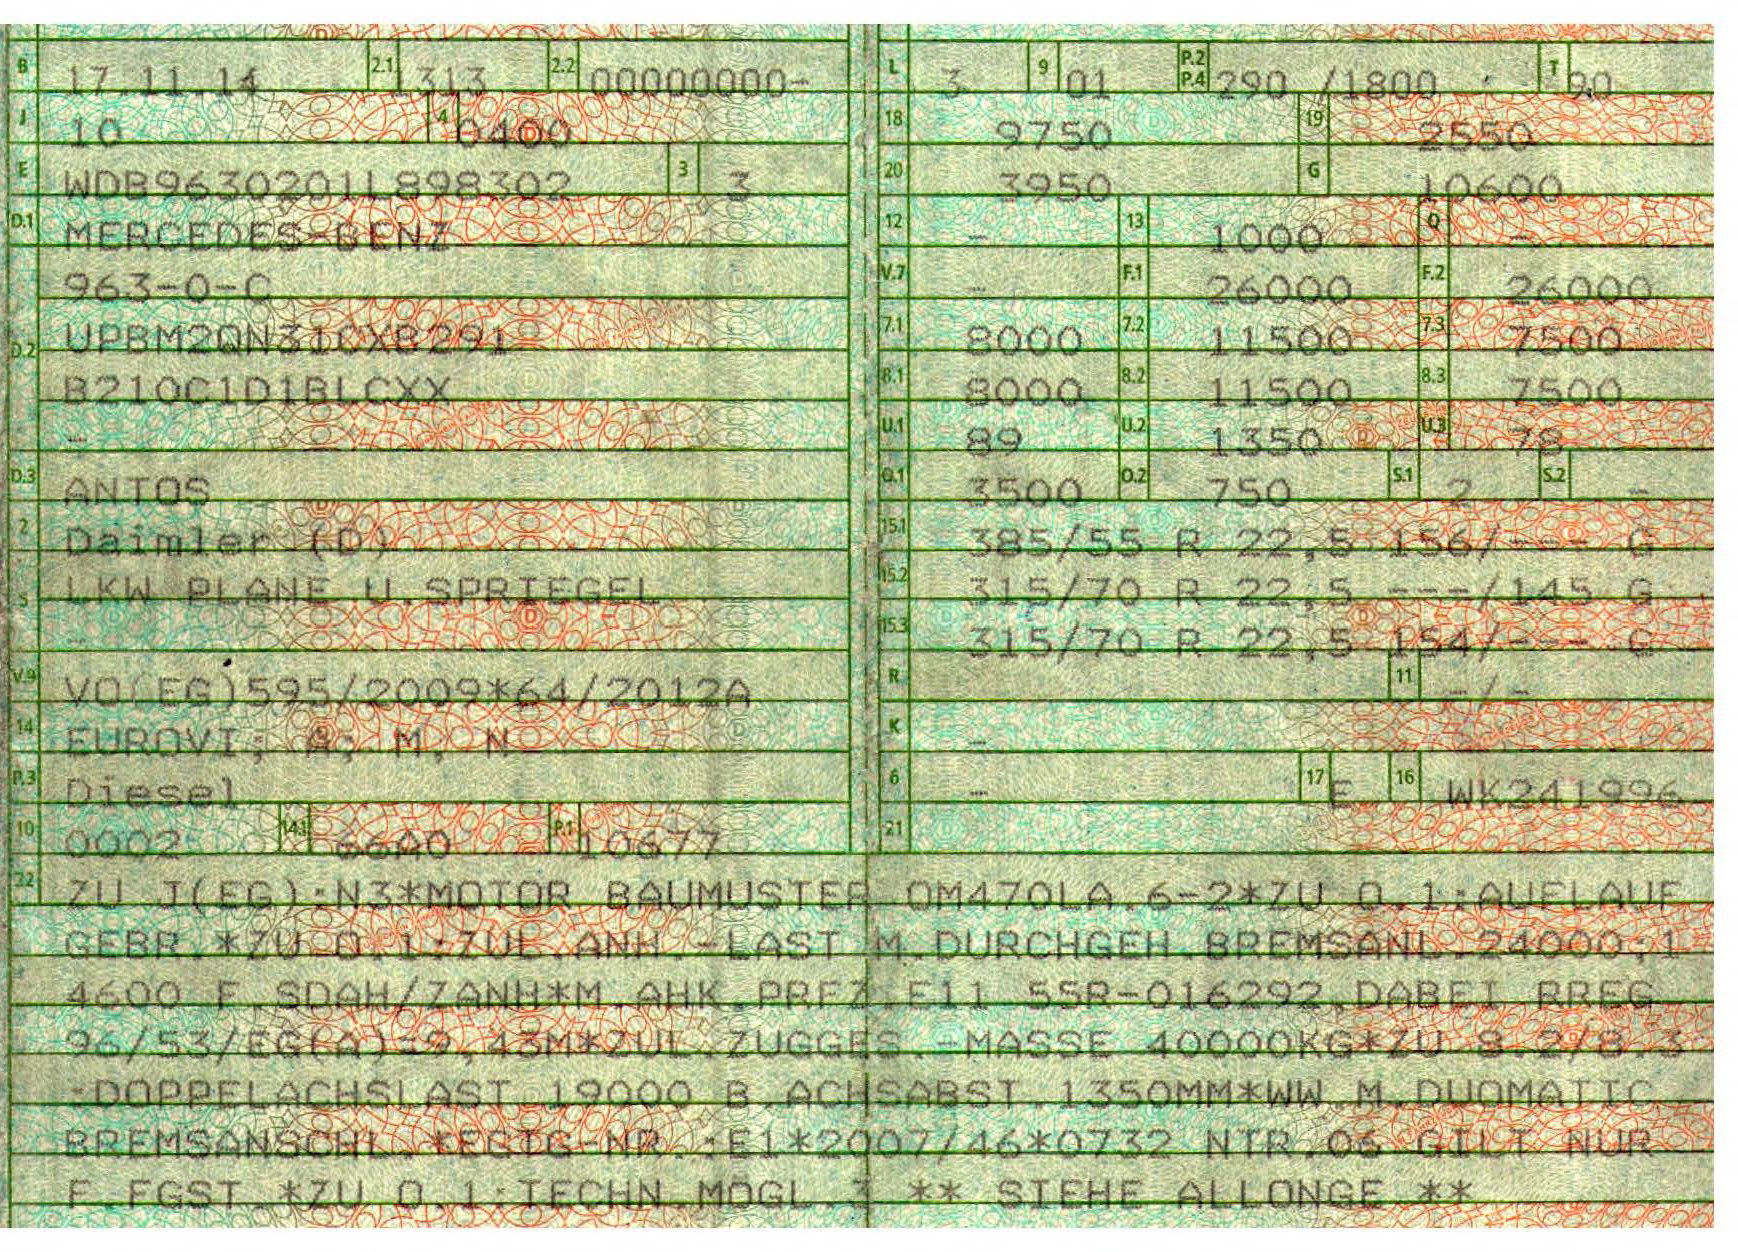 B 17.11.14 2.1 1313 2.2 00000000-
J 10 4 0400
E WDB9630201L898302 3 3
D.1 MERCEDES-BENZ
963-0-C
D.2 UPBM2QN31CXB291
B210C1D1BLCXX
-
D.3 ANTOS
2 Daimler (D)
5 LKW PLANE U.SPRIEGEL
-
V.9 VO(EG)595/2009*64/2012A
14 EUROVI; A; M, N
P.3 Diesel
10 0002 14.1 66A0 P.1 10677
L 3 9 01 P.2 P.4 290 /1800 T 90
18 9750 19 2550
20 3950 G 10600
12 - 13 1000 Q -
V.7 - F.1 26000 F.2 26000
7.1 8000 7.2 11500 7.3 7500
8.1 8000 8.2 11500 8.3 7500
U.1 89 U.2 1350 U.3 78
O.1 3500 O.2 750 S.1 2 S.2 -
15.1 385/55 R 22,5 156/--- G
15.2 315/70 R 22,5 ---/145 G
15.3 315/70 R 22,5 154/--- G
R 11 -/-
K -
6 - 17 E 16 WK241996
21
22 ZU J(EG):N3*MOTOR BAUMUSTER OM470LA.6-2*ZU O.1:AUFLAUF
GEBR.*ZU O.1:ZUL.ANH.-LAST M.DURCHGEH.BREMSANL.24000;1
4600 F.SDAH/ZANH*M.AHK.PRFZ.E11 55R-016292,DABEI RREG
96/53/EG(A)=9,43M*ZUL.ZUGGES.-MASSE 40000KG*ZU 8.2/8.3
:DOPPELACHSLAST 19000 B.ACHSABST.1350MM*WW.M.DUOMATIC
BREMSANSCHL.*EGTG-NR.:E1*2007/46*0732 NTR.06 GILT NUR
F.FGST.*ZU O.1:TECHN.MÖGL.3 ** SIEHE ALLONGE **